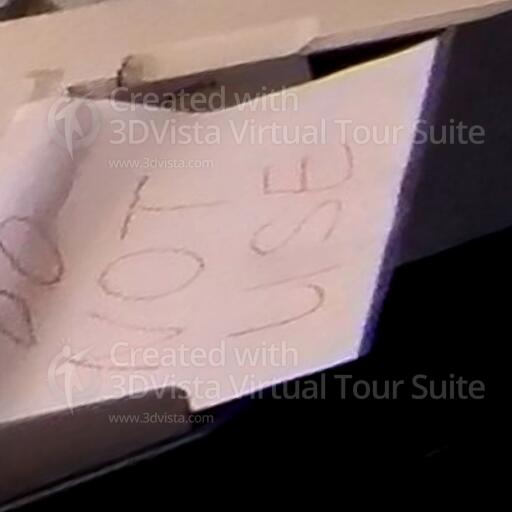 DO
NOT
USE
Created with
3DVista Virtual Tour Suite
www.3dvista.com
Created with
3DVista Virtual Tour Suite
www.3dvista.com